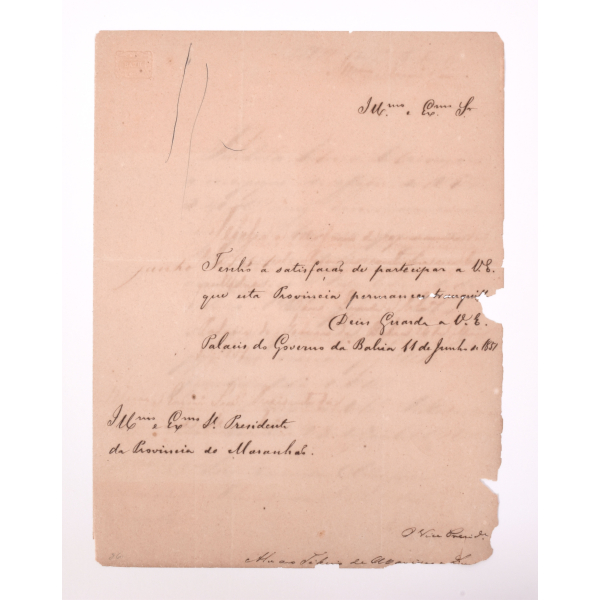 Ill.mo e Ex.mo Sr.
Tenho a satisfação de participar a V. E.
que esta Provincia permanece
Deus Guarde a V. E.
Palacio do Governo da Bahia 11 de Junho de
Ill.mo e Ex.mo Sr. Presidente
da Provincia do Maranhão.
O Vice Presid.e
de